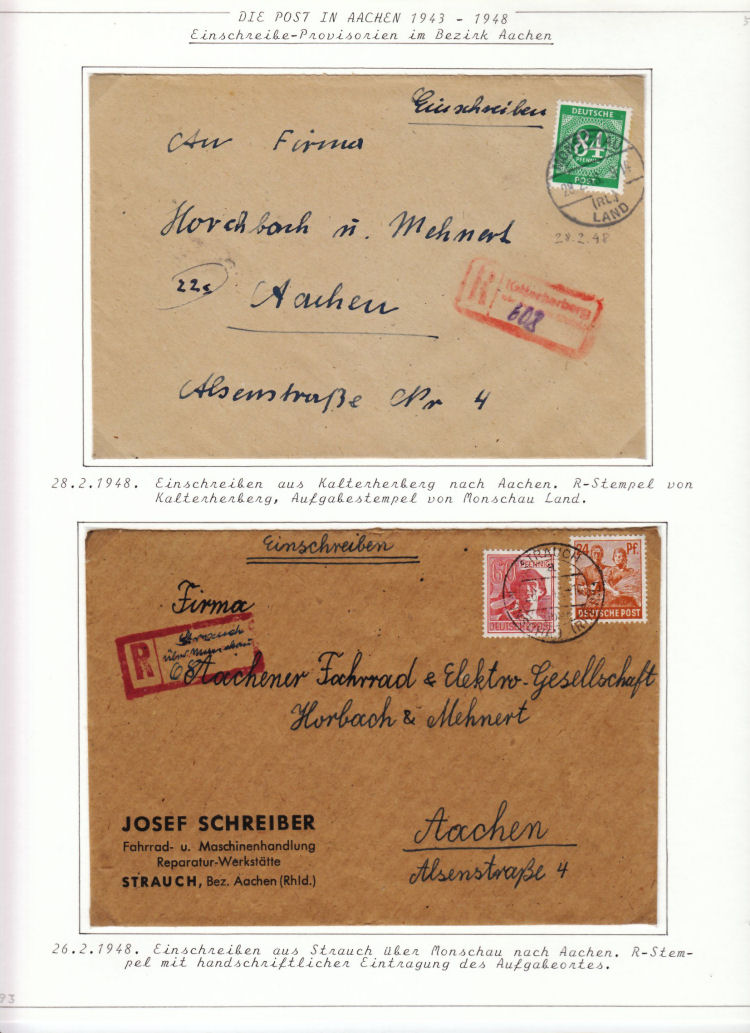 DIE POST IN AACHEN 1943 - 1948
Einschreibe-Provisorien im Bezirk Aachen
Einschreiben
DEUTSCHE
84
PFENNIG
POST
(RL)
LAND
28.2.48
An Firma
Horchbach u. Mehnert
22c
Aachen
R
Kalterherberg
608
Alsenstraße Nr 4
28.2.1948. Einschreiben aus Kalterherberg nach Aachen. R-Stempel von
Kalterherberg, Aufgabestempel von Monschau Land.
Einschreiben
60 PFENNIG
DEUTSCHE POST
24 PF.
DEUTSCHE POST
STRAUCH
a
Firma
R
Strauch
über Monschau
68
Aachener Fahrrad & Elektro-Gesellschaft
Horbach & Mehnert
JOSEF SCHREIBER
Fahrrad- u. Maschinenhandlung
Reparatur-Werkstätte
STRAUCH, Bez. Aachen (Rhld.)
Aachen
Alsenstraße 4
26.2.1948. Einschreiben aus Strauch über Monschau nach Aachen. R-Stem-
pel mit handschriftlicher Eintragung des Aufgabeortes.